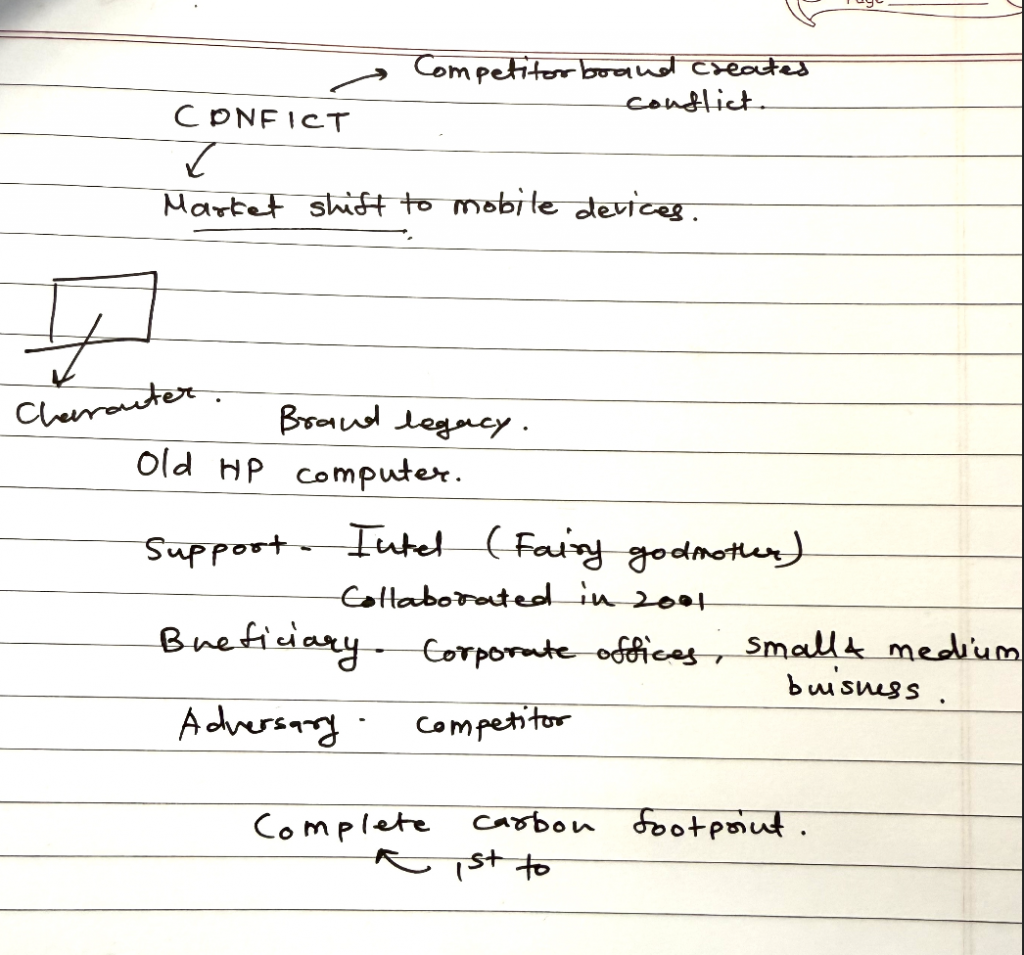 Page
Competitor brand creates
conflict.
CONFICT
Market shift to mobile devices.
Character.
Brand legacy.
Old HP computer.
Support - Intel (Fairy godmother)
Collaborated in 2001
Bneficiary - Corporate offices, small & medium
buisness.
Adversary - competitor
Complete carbon footprint.
1st to